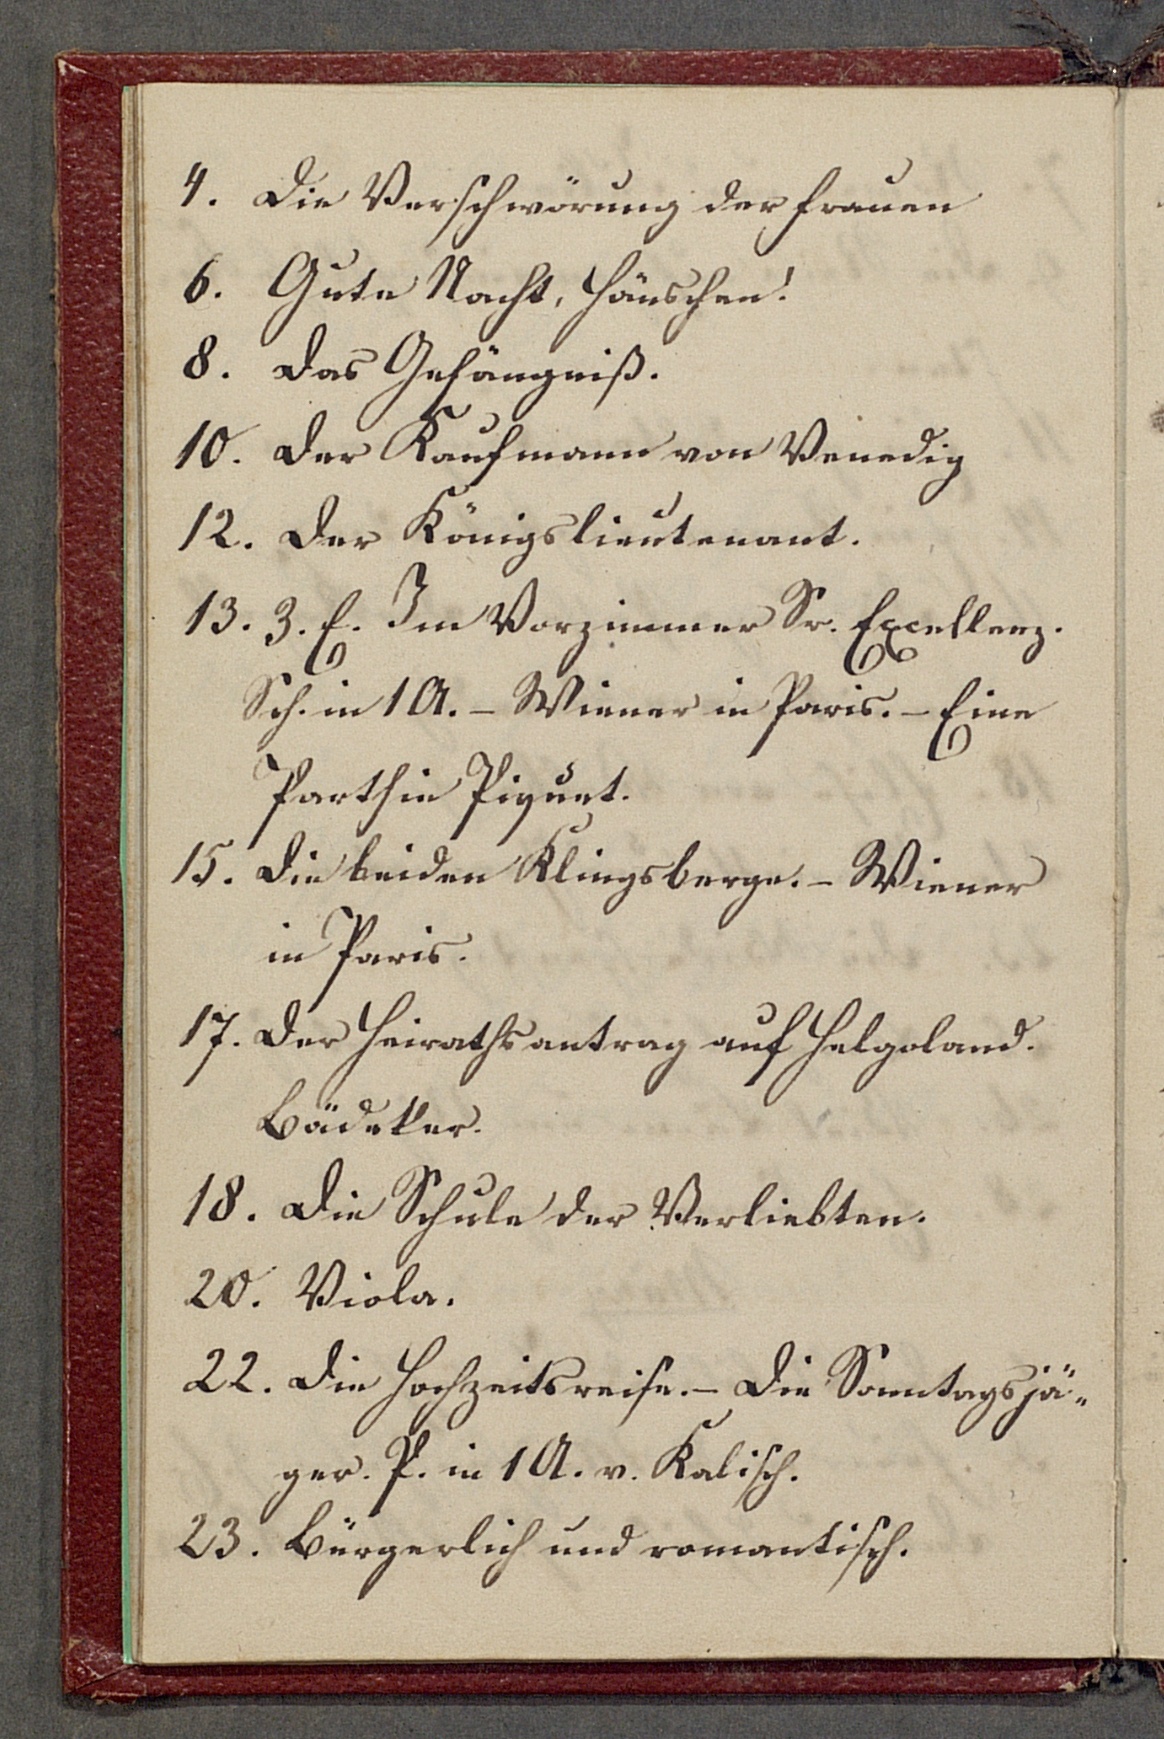 4. Die Verschwörung der Frauen
6. Gute Nacht, Hänschen!
8. Das Gefängniß.
10. Der Kaufmann von Venedig
12. Der Königslieutenant.
13. Z. E. Im Vorzimmer Sr. Excellenz.
Sch. in 1 A. – Wiener in Paris. – Eine
Parthie Piquet.
15. Die beiden Klingsberge. – Wiener
in Paris.
17. Der Heirathsantrag auf Helgoland.
Bädeker.
18. Die Schule der Verliebten.
20. Viola.
22. Die Hochzeitsreise. – Die Sonntagsjä-
ger. P. in 1 A. v. Kalisch.
23. Bürgerlich und romantisch.